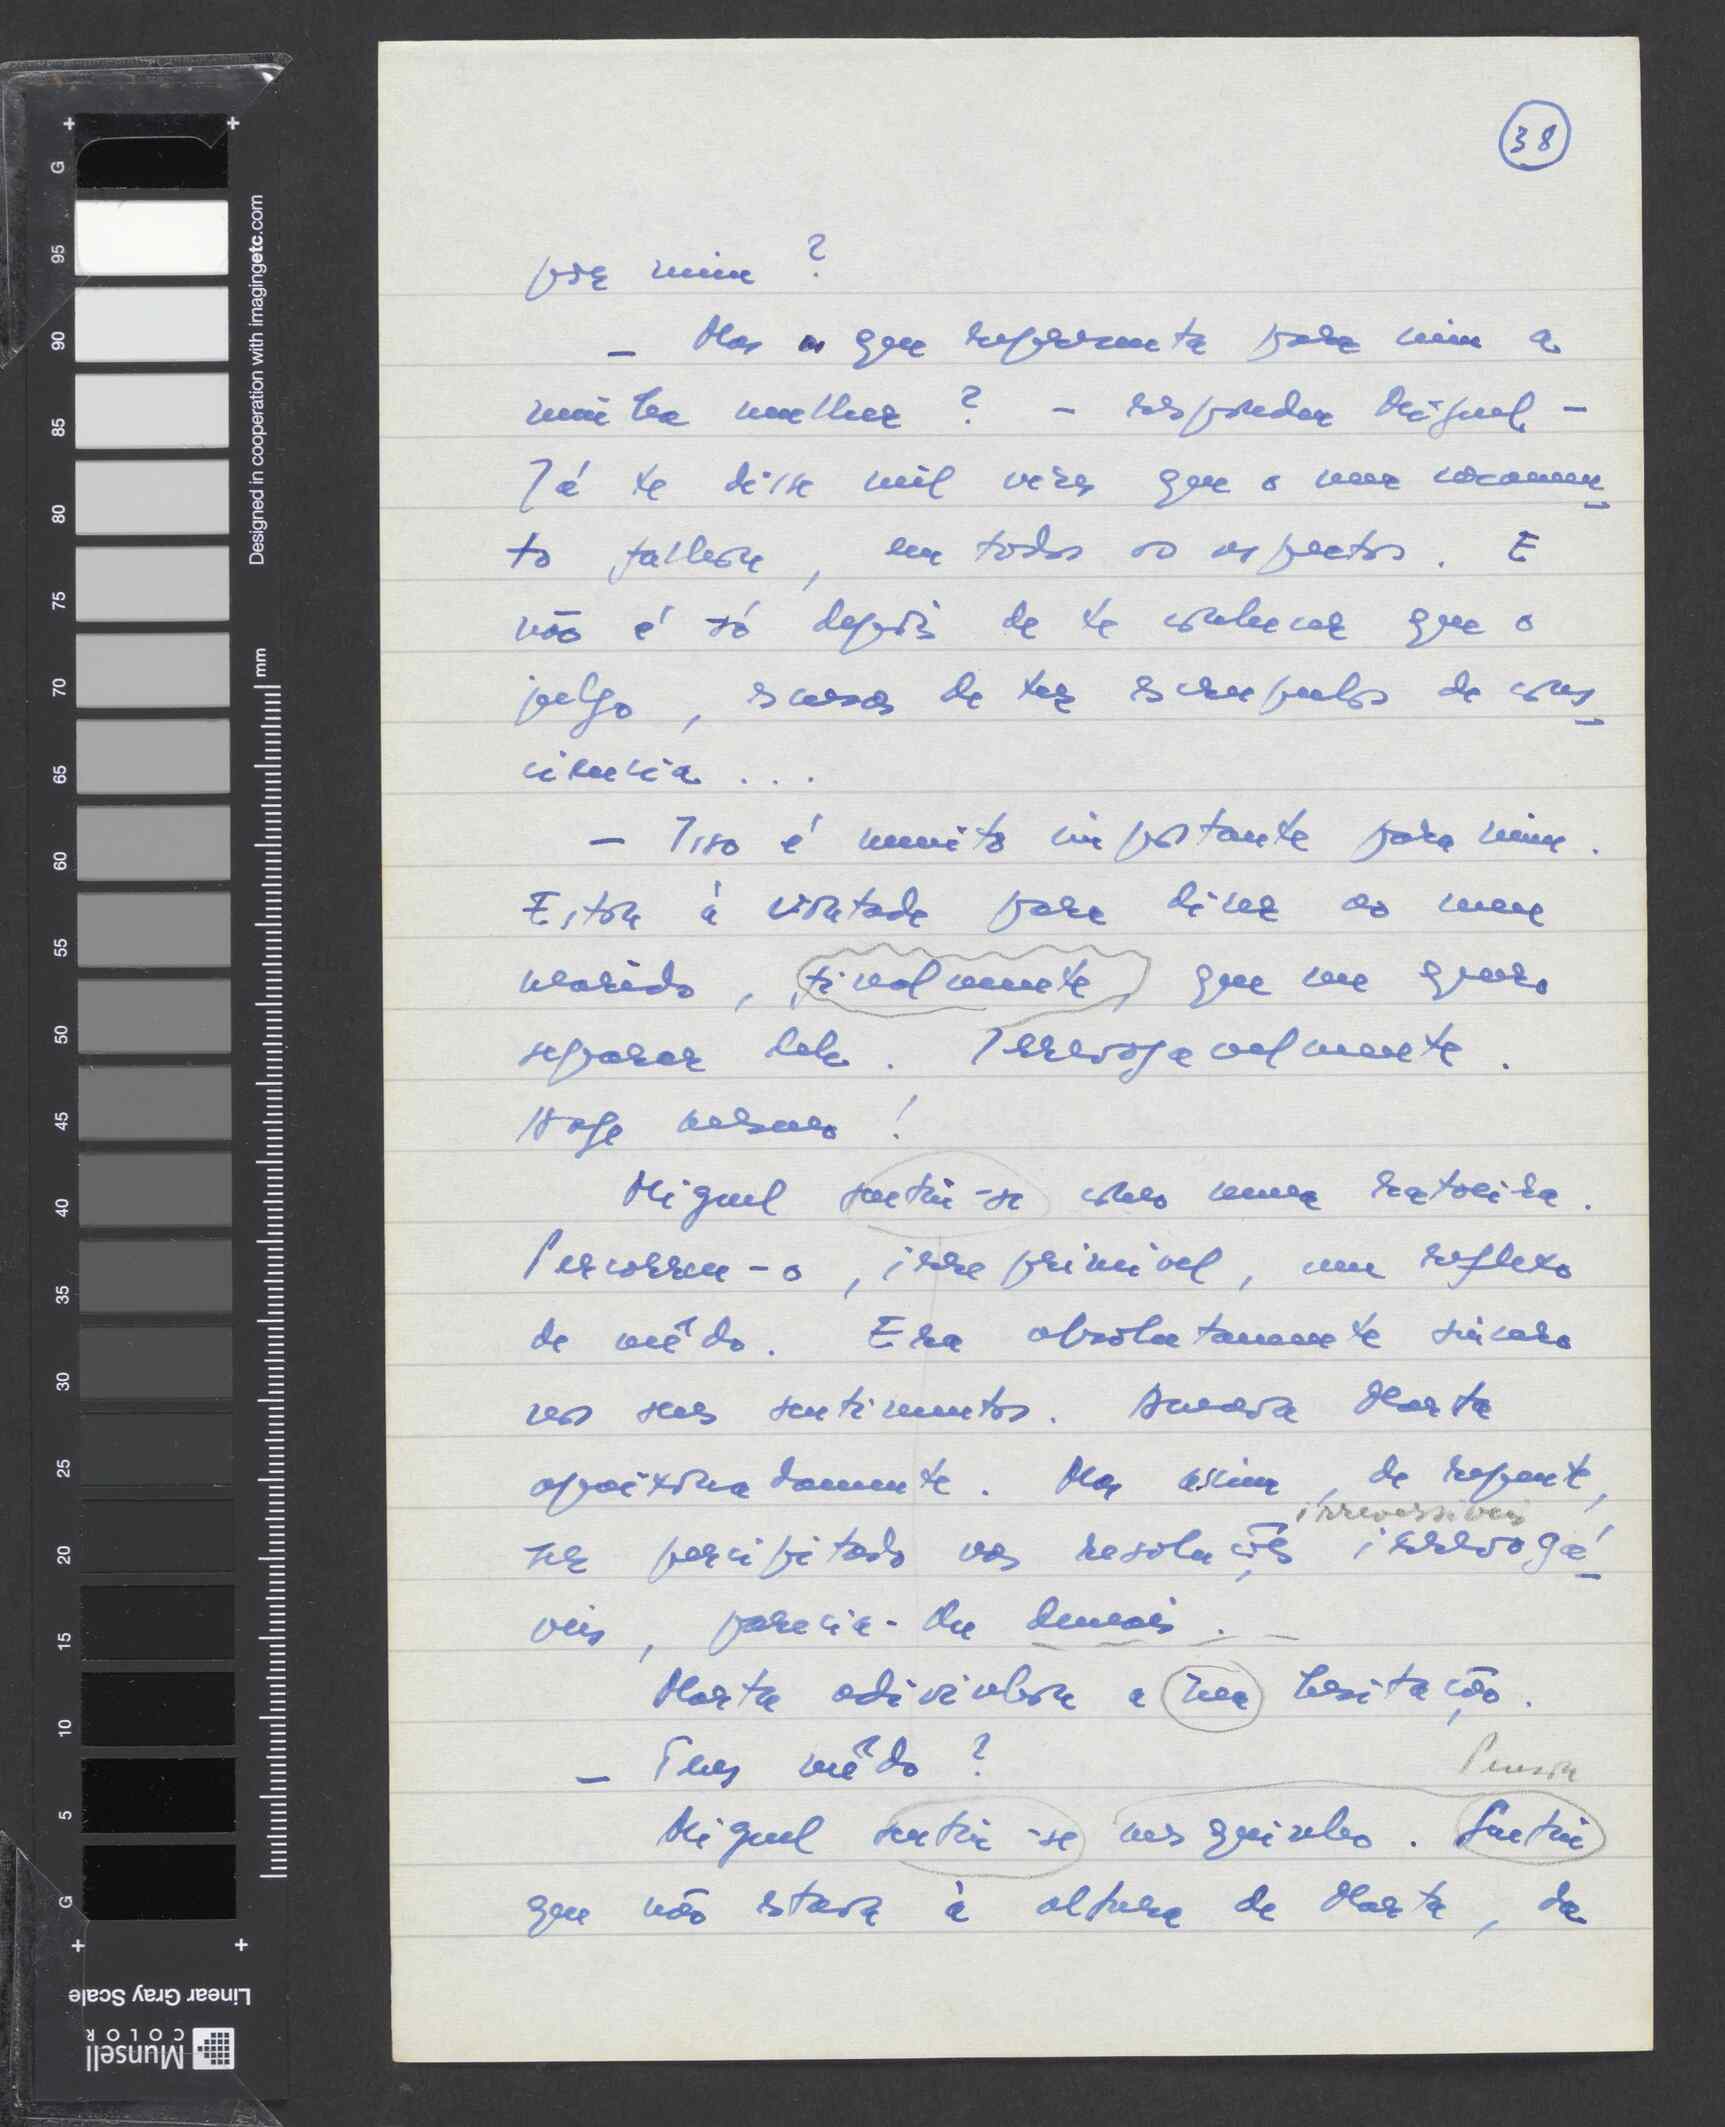 38
por mim?
— Mas o que representa para mim a
minha mulher? – respondeu Miguel –
Já te disse mil vezes que o meu casamen-
to falhou, em todos os aspectos. E
não é só depois de te conhecer que o
julgo, escusas de ter escrupulos de cons-
ciencia...
— Isso é muito importante para mim.
Estou à vontade para dizer ao meu
marido, finalmente, que me quero
separar dele. Irrevogavelmente.
Hoje mesmo!
Miguel sentiu-se como numa ratoeira.
Percorreu-o, irreprimivel, um reflexo
de mêdo. Era absolutamente sincero
nos seus sentimentos. Amava Marta
apaixonadamente. Mas assim, de repente,
irreversiveis
ser precipitado nas resoluções irrevogá-
veis, parecia-lhe demais.
Marta adivinhou a sua hesitação.
— Tens mêdo?
Pensou
Miguel sentiu-se mesquinho. Sentiu
que não estava à altura de Marta, da
G
95
90
85
80
75
70
65
60
55
50
45
40
35
30
25
20
15
10
5
G
Designed in cooperation with imagingetc.com
mm
Linear Gray Scale
Munsell
COLOR